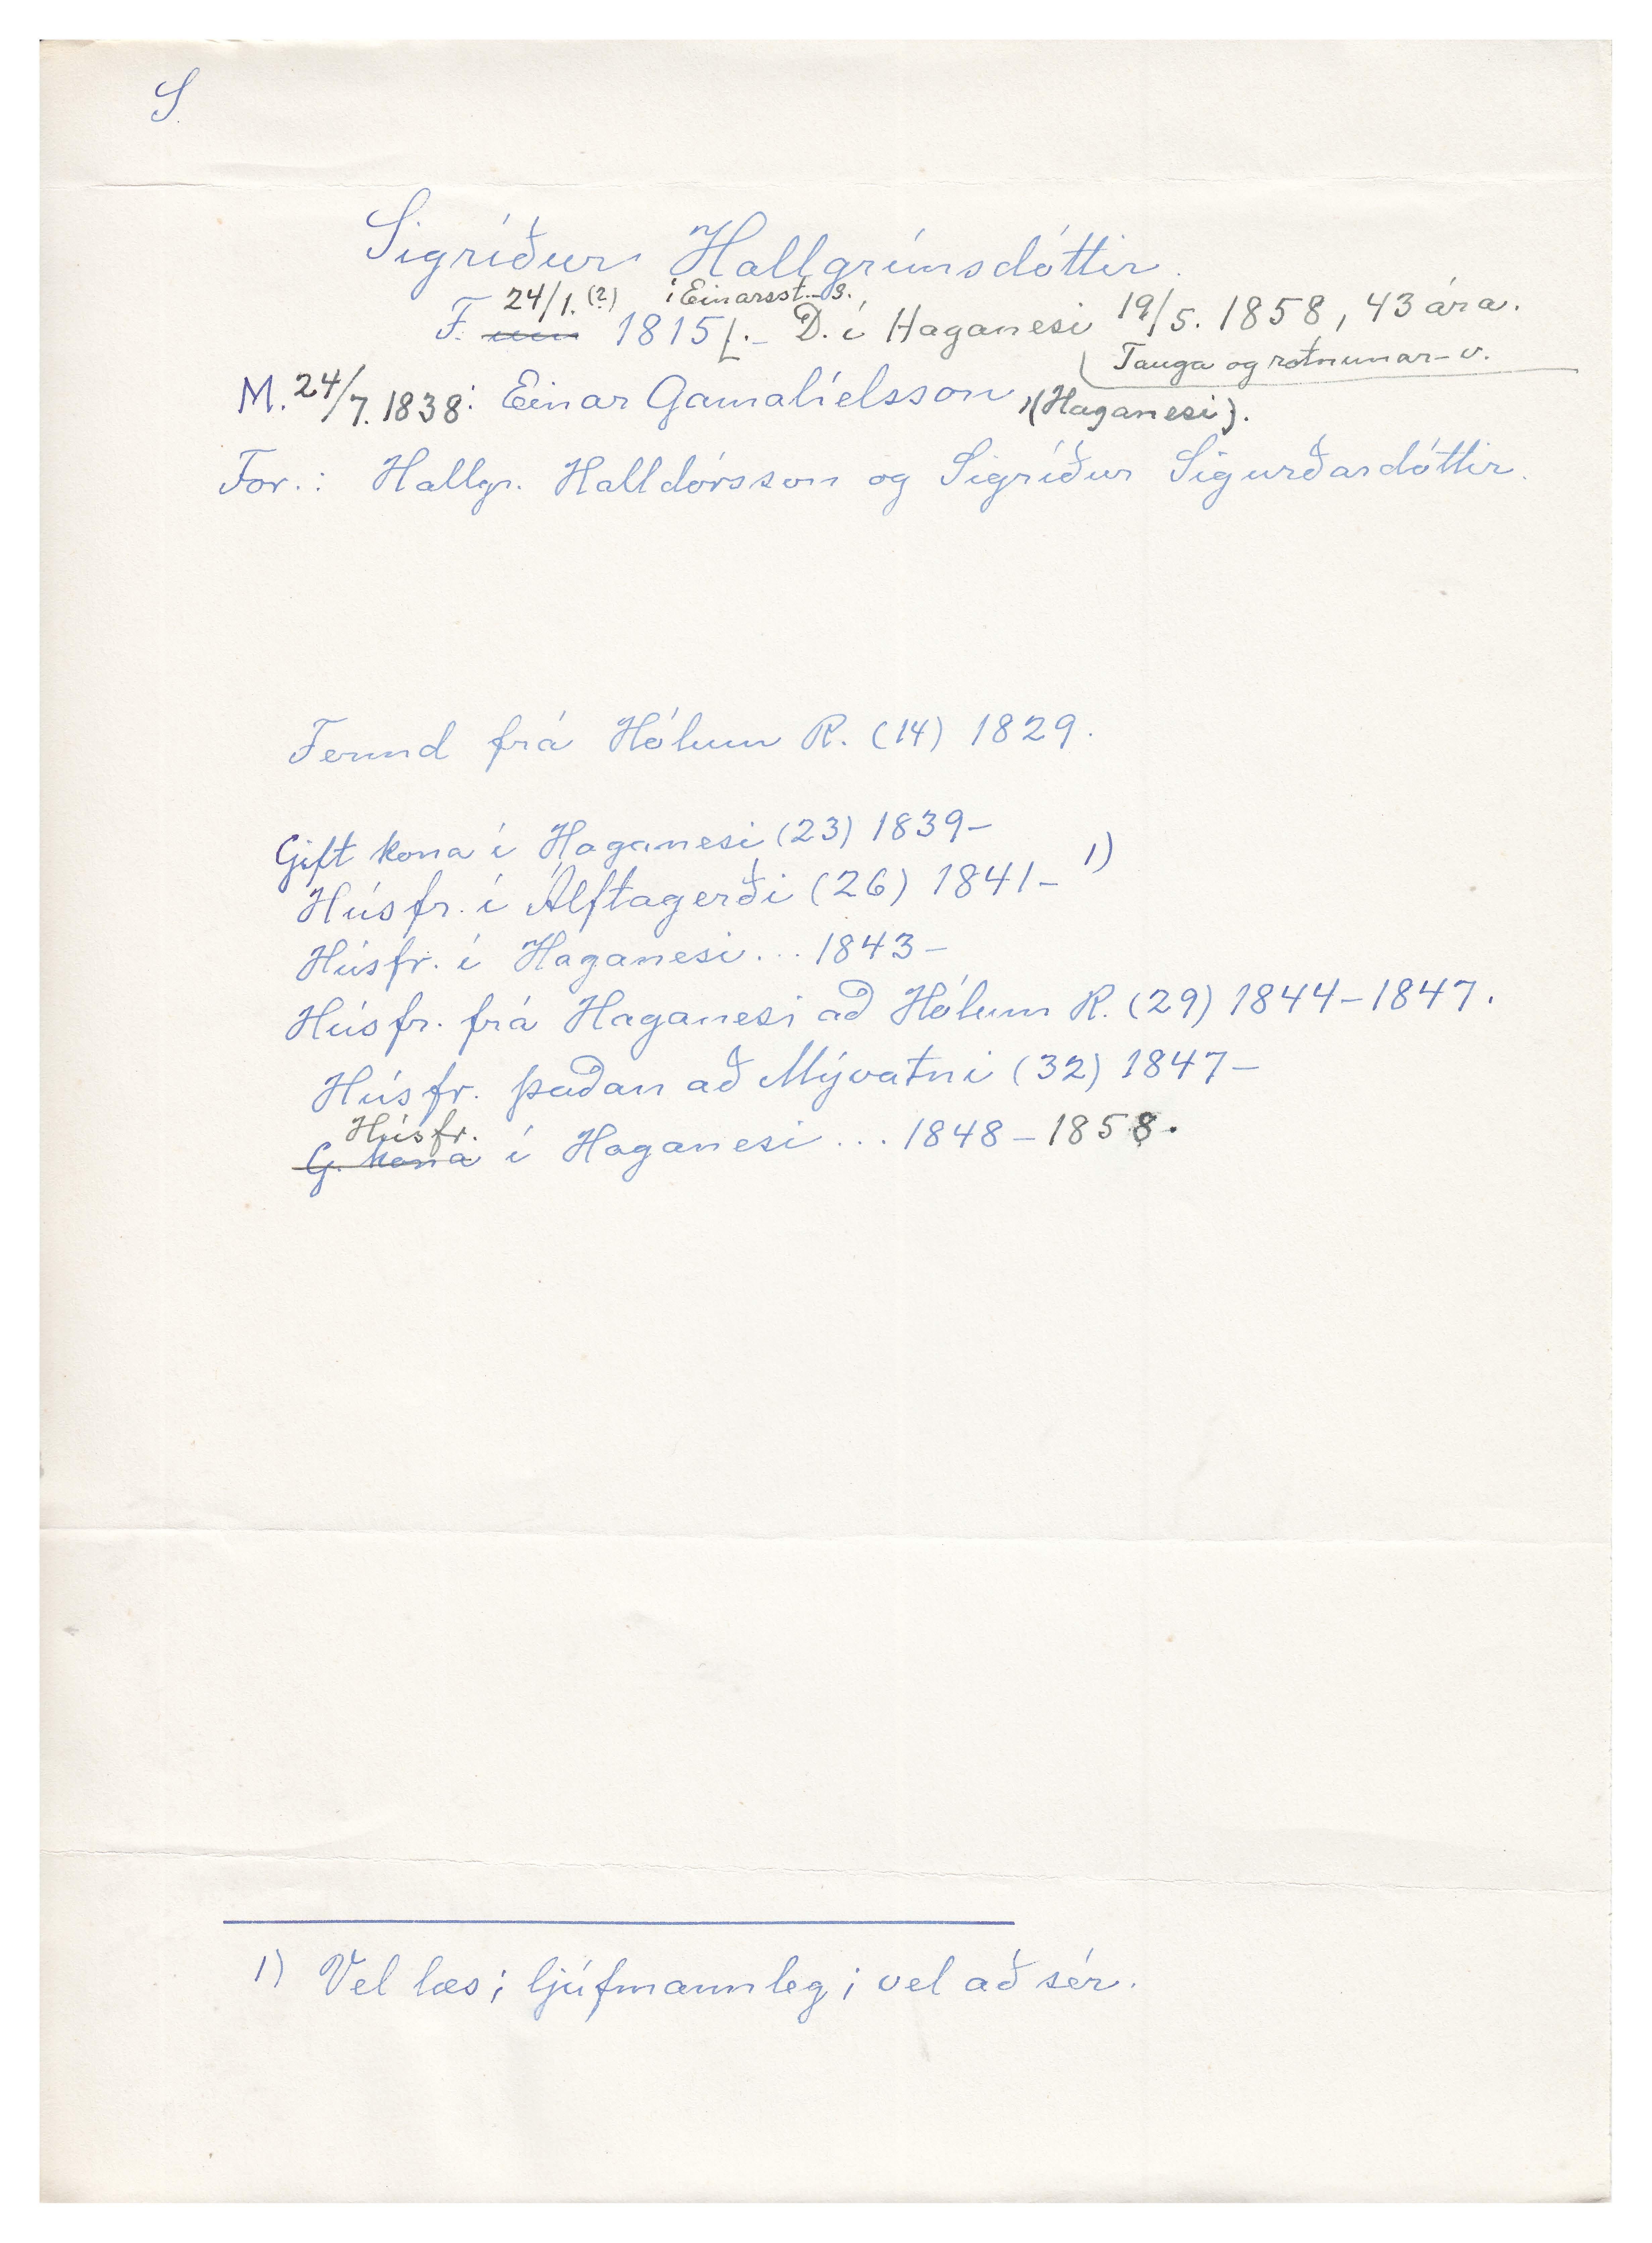 S.
Sigríður Hallgrímsdóttir.
F. ~~um~~ 24/1.(?) 1815 í Einarsst.-s. - D. í Haganesi 19/5. 1858, 43 ára.
Tauga og rotnunar-v.
M. 24/7. 1838: Einar Gamalíelsson, (Haganesi).
For.: Hallgr. Halldórsson og Sigríður Sigurðardóttir.
Fermd frá Hólum R. (14) 1829.
Gift kona í Haganesi (23) 1839-
Húsfr. í Álftagerði (26) 1841- 1)
Húsfr. í Haganesi... 1843-
Húsfr. frá Haganesi að Hólum R. (29) 1844-1847.
Húsfr. þaðan að Mývatni (32) 1847-
~~G. kona~~ Húsfr. í Haganesi ... 1848-1858.
1) Vel læs; ljúfmannleg; vel að sér.